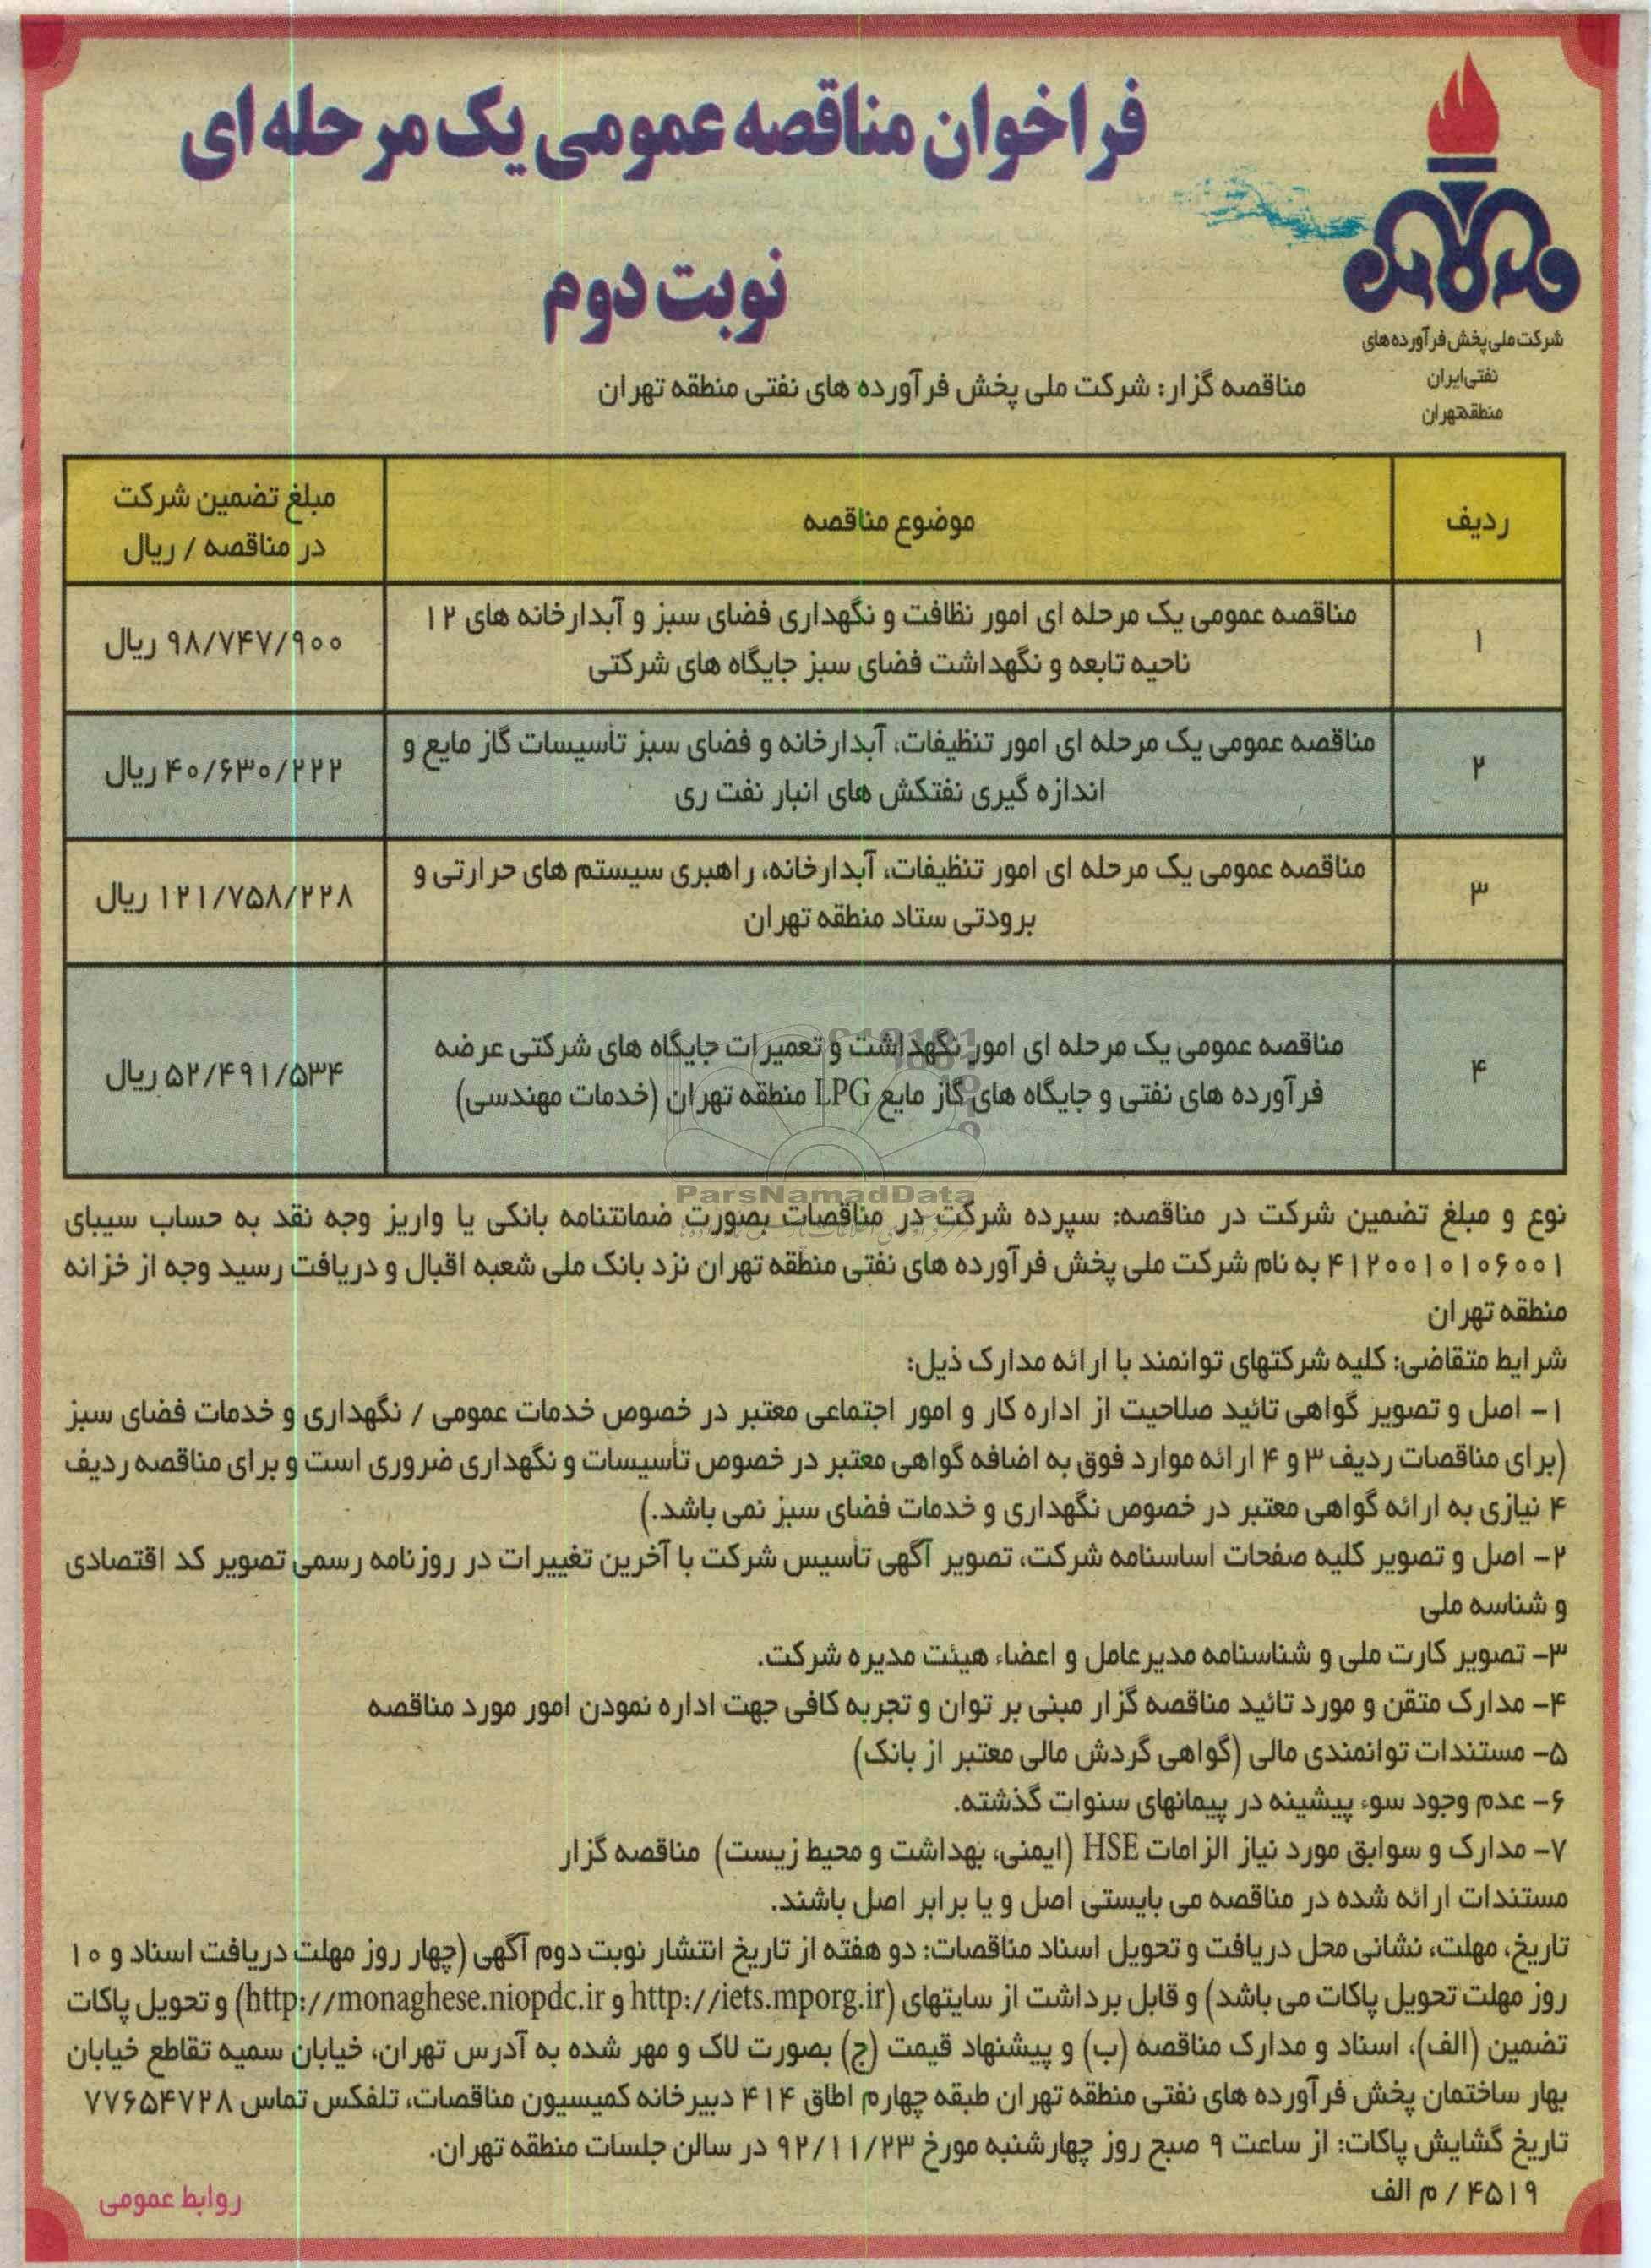 فراخوان مناقصه عمومی یک مرحله ای
نوبت دوم
شرکت ملی پخش فرآورده های
نفتی ایران
منطقه تهران
مناقصه گزار: شرکت ملی پخش فرآورده های نفتی منطقه تهران
ردیف
موضوع مناقصه
مبلغ تضمین شرکت
در مناقصه / ریال
۱
مناقصه عمومی یک مرحله ای امور نظافت و نگهداری فضای سبز و آبدارخانه های ۱۲
ناحیه تابعه و نگهداشت فضای سبز جایگاه های شرکتی
۹۸/۷۴۷/۹۰۰ ریال
۲
مناقصه عمومی یک مرحله ای امور تنظیفات، آبدارخانه و فضای سبز تأسیسات گاز مایع و
اندازه گیری نفتکش های انبار نفت ری
۴۰/۶۳۰/۲۲۲ ریال
۳
مناقصه عمومی یک مرحله ای امور تنظیفات، آبدارخانه، راهبری سیستم های حرارتی و
برودتی ستاد منطقه تهران
۱۲۱/۷۵۸/۲۲۸ ریال
۴
مناقصه عمومی یک مرحله ای امور نگهداشت و تعمیرات جایگاه های شرکتی عرضه
فرآورده های نفتی و جایگاه های گاز مایع LPG منطقه تهران (خدمات مهندسی)
۵۲/۴۹۱/۵۳۴ ریال
ParsNamadData
نوع و مبلغ تضمین شرکت در مناقصه: سپرده شرکت در مناقصات بصورت ضمانتنامه بانکی یا واریز وجه نقد به حساب سیبای
۴۱۲۰۰۱۰۱۰۶۰۰۱ به نام شرکت ملی پخش فرآورده های نفتی منطقه تهران نزد بانک ملی شعبه اقبال و دریافت رسید وجه از خزانه
منطقه تهران
شرایط متقاضی: کلیه شرکتهای توانمند با ارائه مدارک ذیل:
۱- اصل و تصویر گواهی تائید صلاحیت از اداره کار و امور اجتماعی معتبر در خصوص خدمات عمومی / نگهداری و خدمات فضای سبز
(برای مناقصات ردیف ۳ و ۴ ارائه موارد فوق به اضافه گواهی معتبر در خصوص تأسیسات و نگهداری ضروری است و برای مناقصه ردیف
۴ نیازی به ارائه گواهی معتبر در خصوص نگهداری و خدمات فضای سبز نمی باشد.)
۲- اصل و تصویر کلیه صفحات اساسنامه شرکت، تصویر آگهی تأسیس شرکت با آخرین تغییرات در روزنامه رسمی تصویر کد اقتصادی
و شناسه ملی
۳- تصویر کارت ملی و شناسنامه مدیرعامل و اعضاء هیئت مدیره شرکت.
۴- مدارک متقن و مورد تائید مناقصه گزار مبنی بر توان و تجربه کافی جهت اداره نمودن امور مورد مناقصه
۵- مستندات توانمندی مالی (گواهی گردش مالی معتبر از بانک)
۶- عدم وجود سوء پیشینه در پیمانهای سنوات گذشته.
۷- مدارک و سوابق مورد نیاز الزامات HSE (ایمنی، بهداشت و محیط زیست) مناقصه گزار
مستندات ارائه شده در مناقصه می بایستی اصل و یا برابر اصل باشند.
تاریخ، مهلت، نشانی محل دریافت و تحویل اسناد مناقصات: دو هفته از تاریخ انتشار نوبت دوم آگهی (چهار روز مهلت دریافت اسناد و ۱۰
روز مهلت تحویل پاکات می باشد) و قابل برداشت از سایتهای (http://iets.mporg.ir و http://monaghese.niopdc.ir) و تحویل پاکات
تضمین (الف)، اسناد و مدارک مناقصه (ب) و پیشنهاد قیمت (ج) بصورت لاک و مهر شده به آدرس تهران، خیابان سمیه تقاطع خیابان
بهار ساختمان پخش فرآورده های نفتی منطقه تهران طبقه چهارم اطاق ۴۱۴ دبیرخانه کمیسیون مناقصات، تلفکس تماس ۷۷۶۵۴۷۲۸
تاریخ گشایش پاکات: از ساعت ۹ صبح روز چهارشنبه مورخ ۹۲/۱۱/۲۳ در سالن جلسات منطقه تهران.
۴۵۱۹ / م الف
روابط عمومی